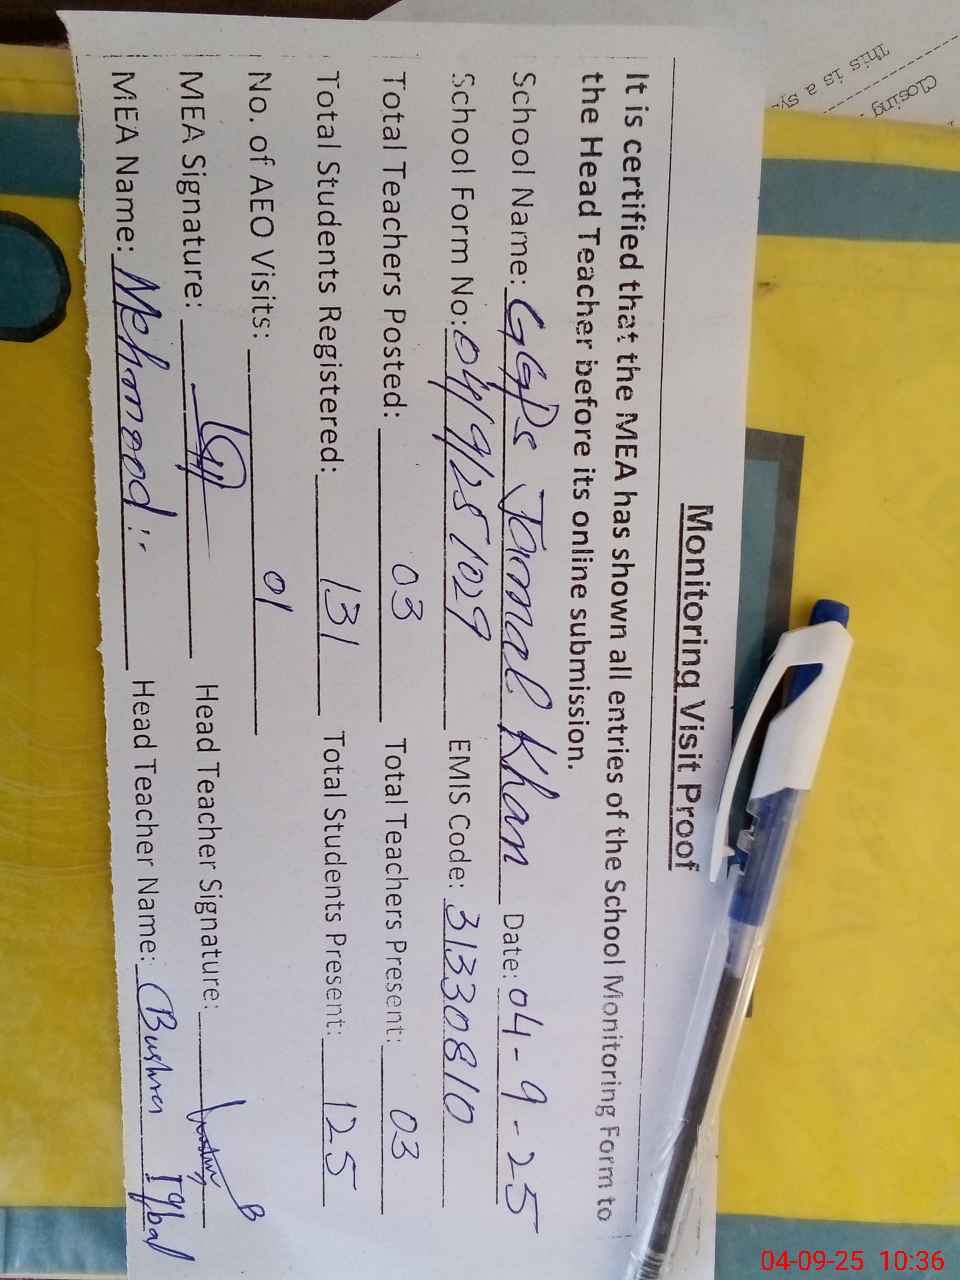 Monitoring Visit Proof
It is certified that the MEA has shown all entries of the School Monitoring Form to
the Head Teacher before its online submission.
School Name: GGPS Jamal Khan Date: 04-9-25
School Form No: 04/9/25 1029 EMIS Code: 31330810
Total Teachers Posted: 03 Total Teachers Present: 03
Total Students Registered: 131 Total Students Present: 125
No. of AEO Visits: 01
MEA Signature: Head Teacher Signature:
MEA Name: Mehmood Head Teacher Name: Bushra Iqbal
Closing
This is a sy
04-09-25 10:36